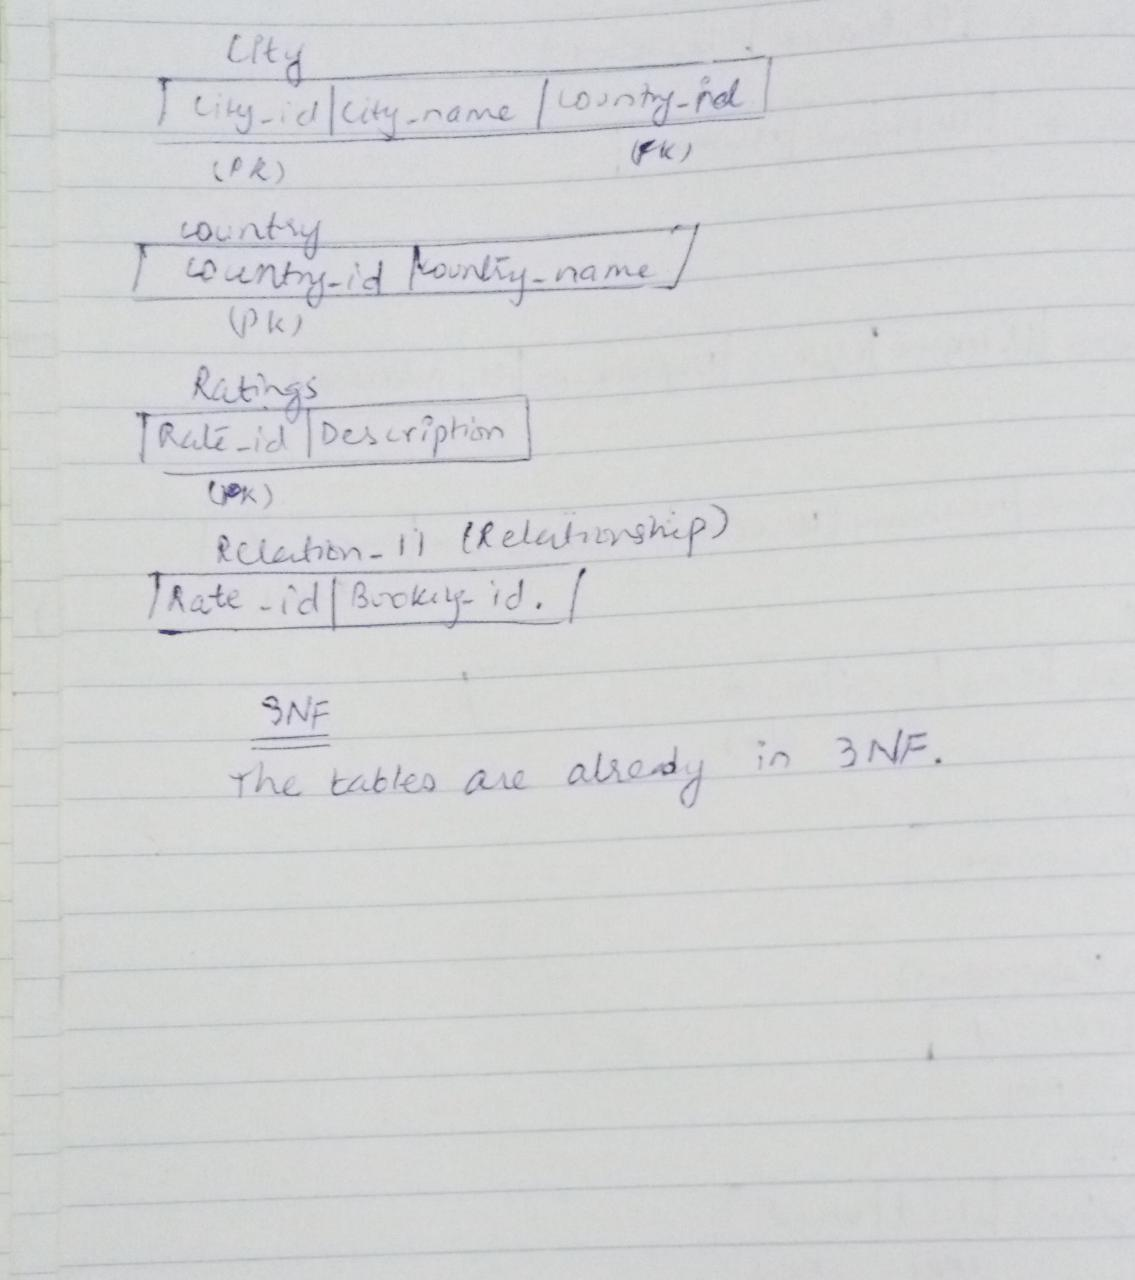 City
City_id | City_name | Country_id
(PK) (FK)
country
country_id | Country_name
(PK)
Ratings
Rate_id | Description
(PK)
Relation-11 (Relationship)
Rate_id | id.
3NF
The tables are already in 3NF.